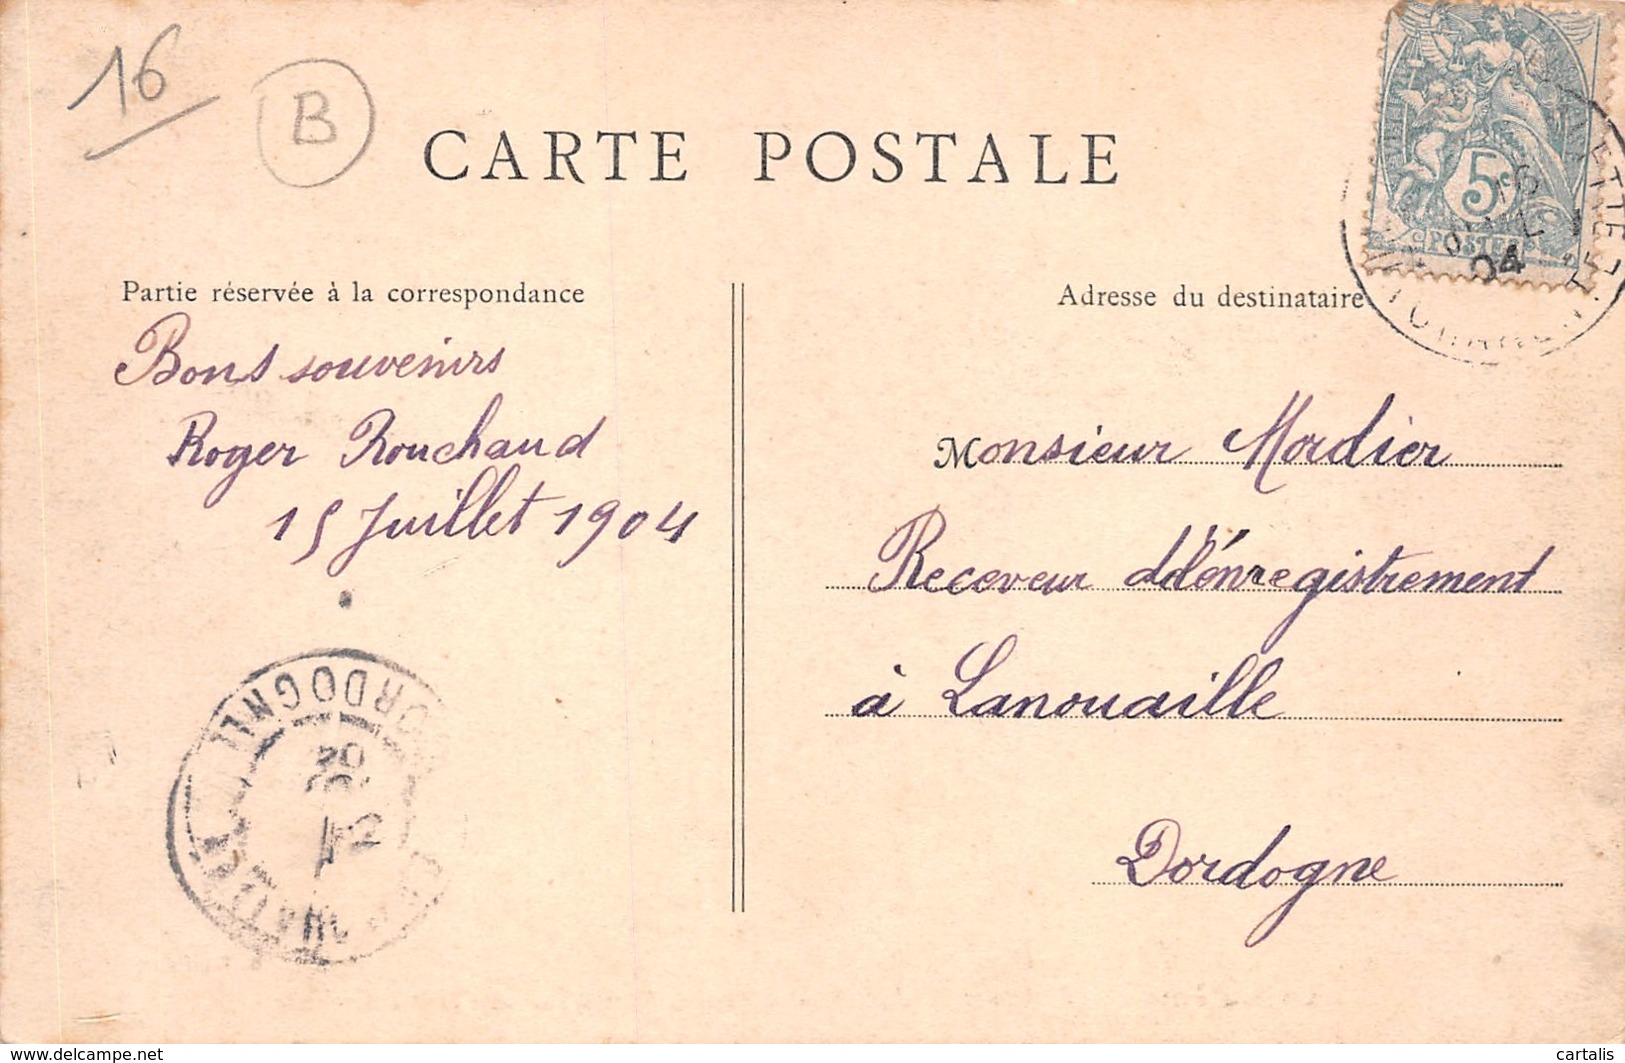 16
B
CARTE POSTALE
5c
POSTES
16
04
Partie réservée à la correspondance
Adresse du destinataire
Bons souvenirs
Roger Rouchaud
15 Juillet 1904
Monsieur Mordier
Receveur d'énregistrement
à Lanouaille
Dordogne
DORDOGNE
04
www.delcampe.net
cartalis